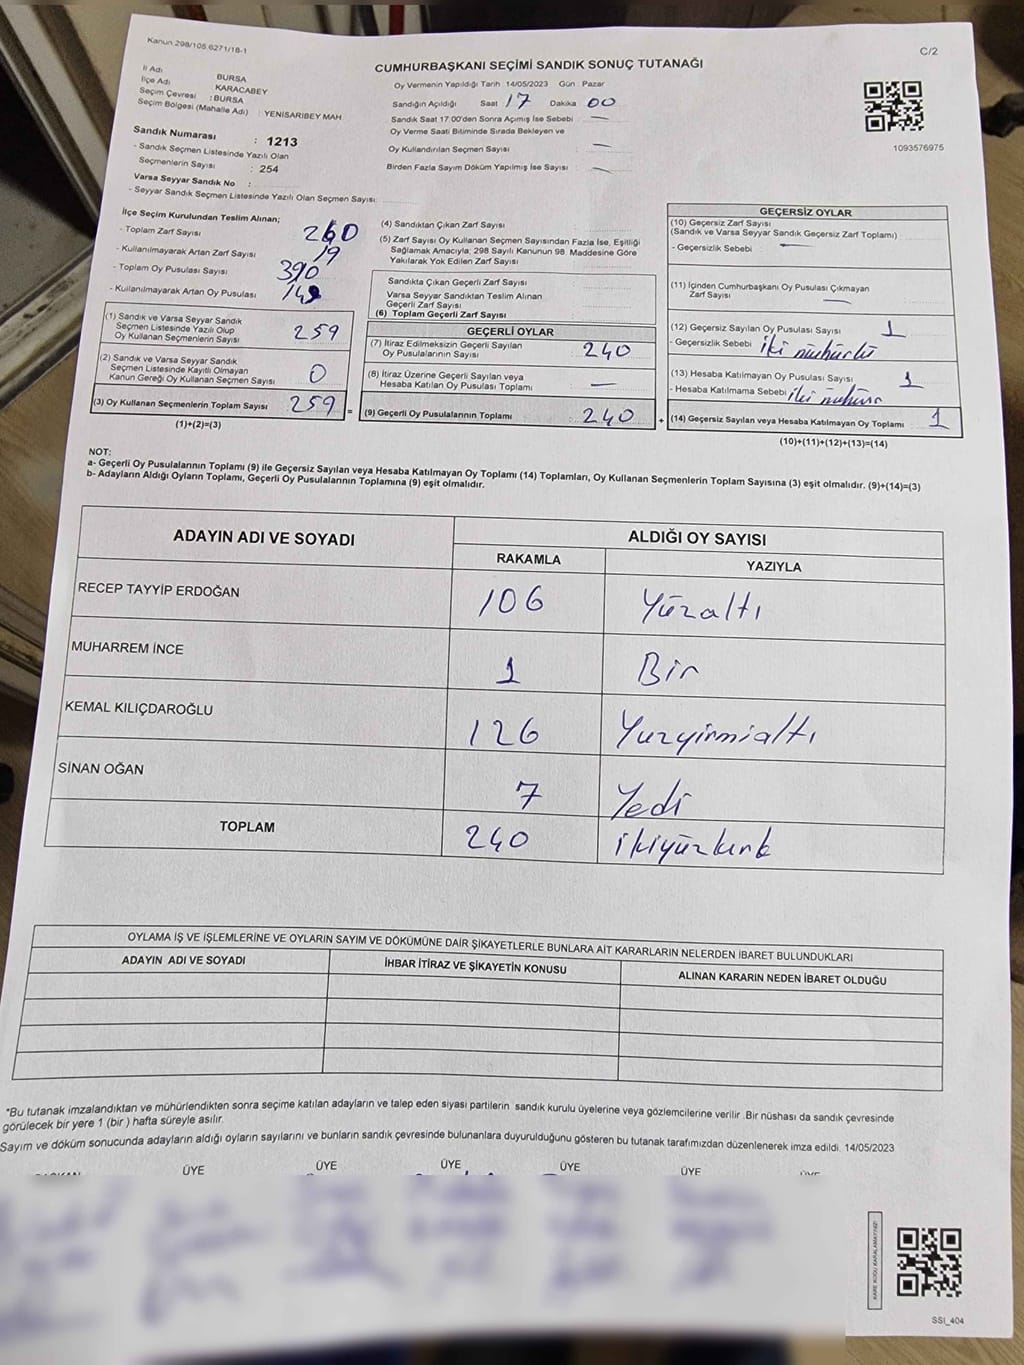 Kanun 298/105.6271/18-1
C/2
CUMHURBAŞKANI SEÇİMİ SANDIK SONUÇ TUTANAĞI
İl Adı BURSA
İlçe Adı KARACABEY
Seçim Çevresi : BURSA
Seçim Bölgesi (Mahalle Adı) : YENISARIBEY MAH
Sandık Numarası : 1213
- Sandık Seçmen Listesinde Yazılı Olan
Seçmenlerin Sayısı : 254
Varsa Seyyar Sandık No :
- Seyyar Sandık Seçmen Listesinde Yazılı Olan Seçmen Sayısı:
Oy Vermenin Yapıldığı Tarih 14/05/2023 Gün Pazar
Sandığın Açıldığı Saat 17 Dakika 00
Sandık Saat 17:00'den Sonra Açımış İse Sebebi —
Oy Verme Saati Bitiminde Sırada Bekleyen ve
Oy Kullandırılan Seçmen Sayısı —
Birden Fazla Sayım Döküm Yapılmış İse Sayısı —
1093576975
İlçe Seçim Kurulundan Teslim Alınan;
- Toplam Zarf Sayısı 260
- Kullanılmayarak Artan Zarf Sayısı 19
- Toplam Oy Pusulası Sayısı 390
- Kullanılmayarak Artan Oy Pusulası
(1) Sandık ve Varsa Seyyar Sandık
Seçmen Listesinde Yazılı Olup
Oy Kullanan Seçmenlerin Sayısı 259
(2) Sandık ve Varsa Seyyar Sandık
Seçmen Listesinde Kayıtlı Olmayan
Kanun Gereği Oy Kullanan Seçmen Sayısı 0
(3) Oy Kullanan Seçmenlerin Toplam Sayısı 259 =
(1)+(2)=(3)
(4) Sandıktan Çıkan Zarf Sayısı
(5) Zarf Sayısı Oy Kullanan Seçmen Sayısından Fazla İse, Eşitliği
Sağlamak Amacıyla, 298 Sayılı Kanunun 98. Maddesine Göre
Yakılarak Yok Edilen Zarf Sayısı
Sandıkta Çıkan Geçerli Zarf Sayısı
Varsa Seyyar Sandıktan Teslim Alınan
Geçerli Zarf Sayısı
(6) Toplam Geçerli Zarf Sayısı
GEÇERLİ OYLAR
(7) İtiraz Edilmeksizin Geçerli Sayılan
Oy Pusulalarının Sayısı 240
(8) İtiraz Üzerine Geçerli Sayılan veya
Hesaba Katılan Oy Pusulası Toplamı —
(9) Geçerli Oy Pusulalarının Toplamı 240 +
GEÇERSİZ OYLAR
(10) Geçersiz Zarf Sayısı
(Sandık ve Varsa Seyyar Sandık Geçersiz Zarf Toplamı)
- Geçersizlik Sebebi —
(11) İçinden Cumhurbaşkanı Oy Pusulası Çıkmayan
Zarf Sayısı —
(12) Geçersiz Sayılan Oy Pusulası Sayısı 1
- Geçersizlik Sebebi iki mühürlü
(13) Hesaba Katılmayan Oy Pusulası Sayısı 1
- Hesaba Katılmama Sebebi iki mühür
(14) Geçersiz Sayılan veya Hesaba Katılmayan Oy Toplamı 1
(10)+(11)+(12)+(13)=(14)
NOT:
a- Geçerli Oy Pusulalarının Toplamı (9) ile Geçersiz Sayılan veya Hesaba Katılmayan Oy Toplamı (14) Toplamları, Oy Kullanan Seçmenlerin Toplam Sayısına (3) eşit olmalıdır. (9)+(14)=(3)
b- Adayların Aldığı Oyların Toplamı, Geçerli Oy Pusulalarının Toplamına (9) eşit olmalıdır.
ADAYIN ADI VE SOYADI
ALDIĞI OY SAYISI
RAKAMLA YAZIYLA
RECEP TAYYİP ERDOĞAN 106 Yüzaltı
MUHARREM İNCE 1 Bir
KEMAL KILIÇDAROĞLU 126 Yuzyirmialtı
SİNAN OĞAN 7 Yedi
TOPLAM 240 ikiyüzkırk
OYLAMA İŞ VE İŞLEMLERİNE VE OYLARIN SAYIM VE DÖKÜMÜNE DAİR ŞİKAYETLERLE BUNLARA AİT KARARLARIN NELERDEN İBARET BULUNDUKLARI
ADAYIN ADI VE SOYADI İHBAR İTİRAZ VE ŞİKAYETİN KONUSU ALINAN KARARIN NEDEN İBARET OLDUĞU
*Bu tutanak imzalandıktan ve mühürlendikten sonra seçime katılan adayların ve talep eden siyasi partilerin sandık kurulu üyelerine veya gözlemcilerine verilir. Bir nüshası da sandık çevresinde
görülecek bir yere 1 (bir) hafta süreyle asılır.
Sayım ve döküm sonucunda adayların aldığı oyların sayılarını ve bunların sandık çevresinde bulunanlara duyurulduğunu gösteren bu tutanak tarafımızdan düzenlenerek imza edildi. 14/05/2023
ÜYE ÜYE ÜYE ÜYE ÜYE
KARE KODU KARALAMAYINIZ!
SSI_404